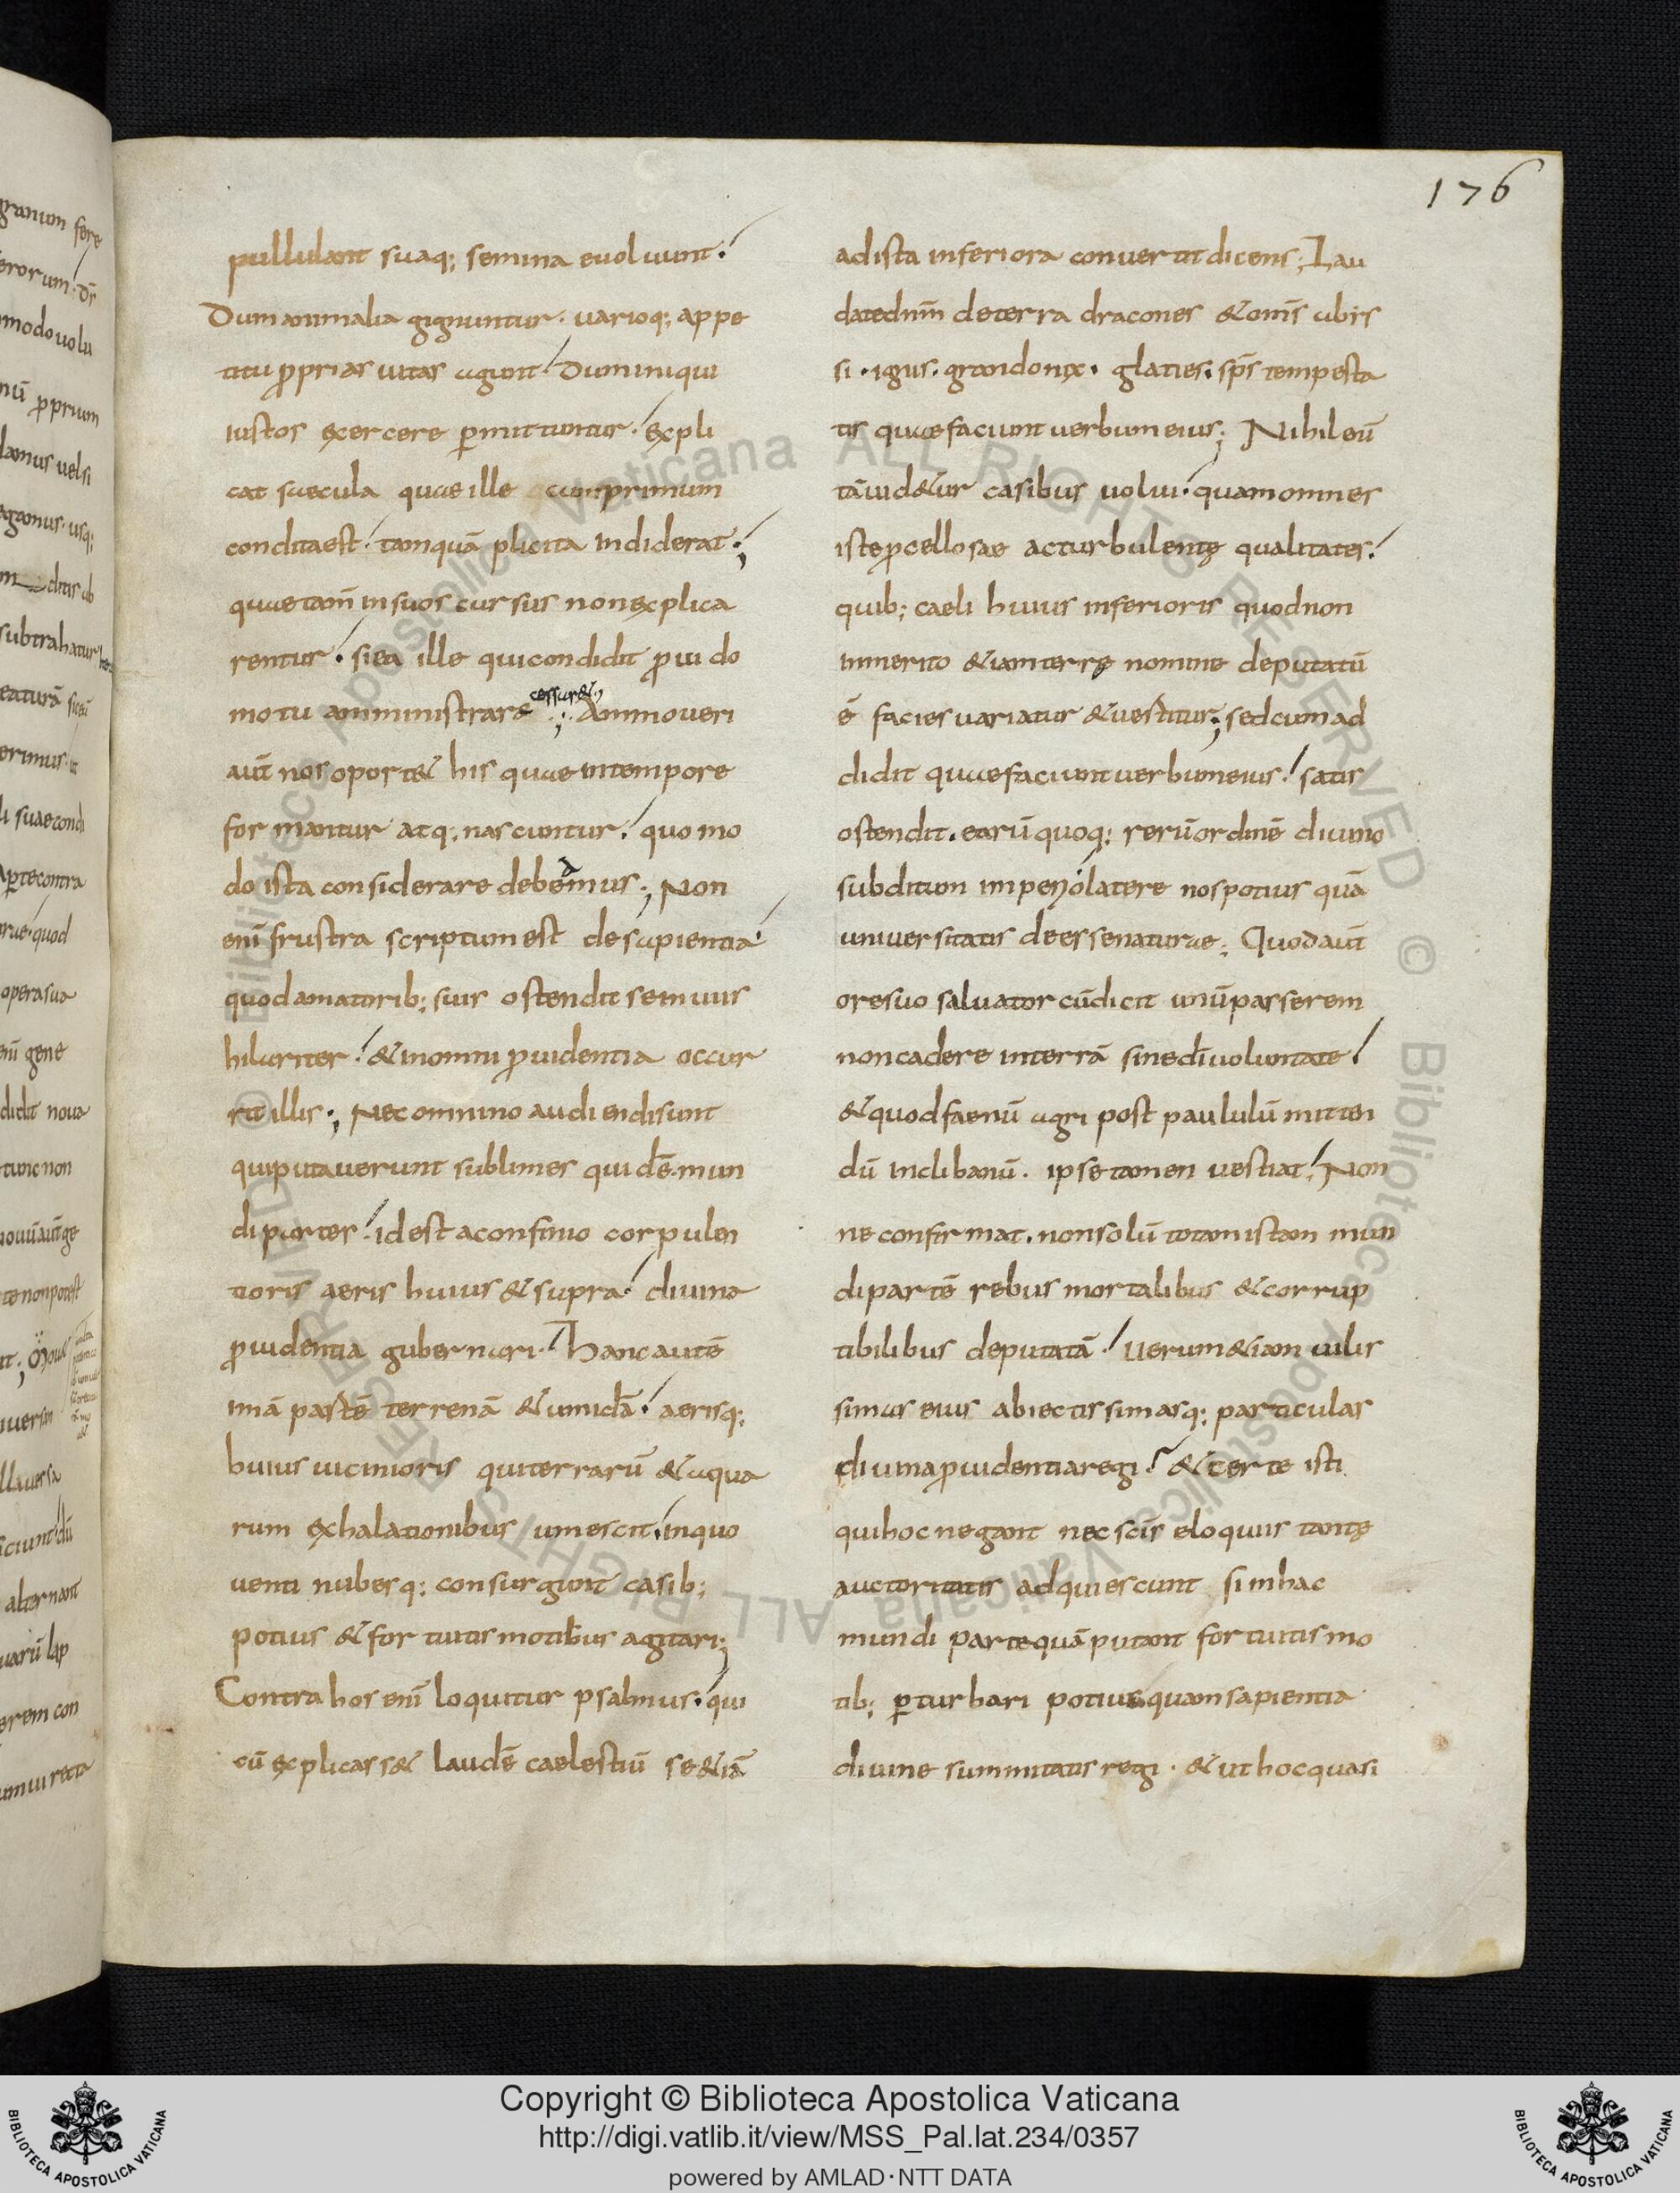 176
pullulant suaq; semina euoluunt.
Dum animalia gignuntur. uarioq; appe
titu ꝓprias uitas agunt. Dum iniqui
iustos exercere ꝑmittuntur. expli
cat saecula quae ille cum primum
conditaest. tamquā plicita indiderat.;
quae tam̄ in suos cursus non explica
rentur. si ea ille qui condidit ꝓuido
motu amministrare cessur&.;. Ammoueri
aut̄ nos oport& his quae intempore
formantur atq; nascuntur. quomo
do ista considerare debeamus.; Non
enī frustra scriptum est desapientia.
quod amatorib; suis ostendit semuis
hilariter. & inomni ꝓuidentia occur
rit illis.; Nec omnino audiendi sunt
qui putauerunt sublimes quidē. mun
di partes. id est aconfinio corpulen
tioris aeris huius & supra. diuina
ꝓuidentia gubernari. hanc autē
imā partē terrenā & umidā. aerisq;
huius uicinioris qui terrarū & aqua
rum exhalationibus umescit. inquo
uenti nubesq; consurgunt casib;
potius & fortuitis motibus agitari;
Contra hos enī loquitur psalmus. qui
cū explicass& laudē caelestiū se&iā
ad ista inferiora conuertit dicens; Lau
date dn̄m deterra dracones & om̄s abis
si. ignis. grando nix. glacies. sp̄s tempesta
tis quae faciunt uerbum eius; Nihil eū
tā uid&ur casibus uolui. quam omnes
iste ꝓcellosae acturbulentę qualitates.
quib; caeli huius inferioris quod non
inmerito &iam terrę nomine deputatū
ē facies uariatur & uestitur; sed cum ad
didit quae faciunt uerbum eius. satis
ostendit. earū quoq; rerū ordinē diuino
subditum imperio latere nos potius quā
uniuersitatis deesse naturae; Quod aut̄
ore suo saluator cū dicit unū passerem
non cadere interrā sine dī uoluntate.
& quod faenū agri post paululū mitten
dū inclibanū. ipse tamen uestiat. Non
ne confirmat. non solū totam istam mun
di partē rebus mortalibus & corrup
tibilibus deputatā. Uerum &iam uilis
simas eius abiectissimasq; particulas
diuina ꝓuidentia regi. & certe isti
qui hoc negant nec sc̄is eloquiis tantę
auctoritatis adquiescunt si inhac
mundi parte quā putant fortuitis mo
tib; ꝑturbari potius quam sapientia
diuine summitatis regi. & ut hoc quasi
Copyright © Biblioteca Apostolica Vaticana
http://digi.vatlib.it/view/MSS_Pal.lat.234/0357
powered by AMLAD·NTT DATA